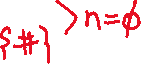 >n=ϕ
{#}